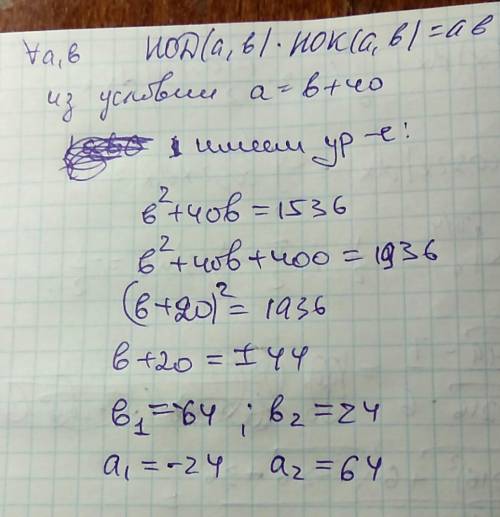 ∀a,в НОД(a,в)·НОК(a,в)=aв
из условия a=в+40
имеем ур-е:
в²+40в=1536
в²+40в+400=1936
(в+20)²=1936
в+20=±44
в₁=-64; в₂=24
a₁=-24 a₂=64